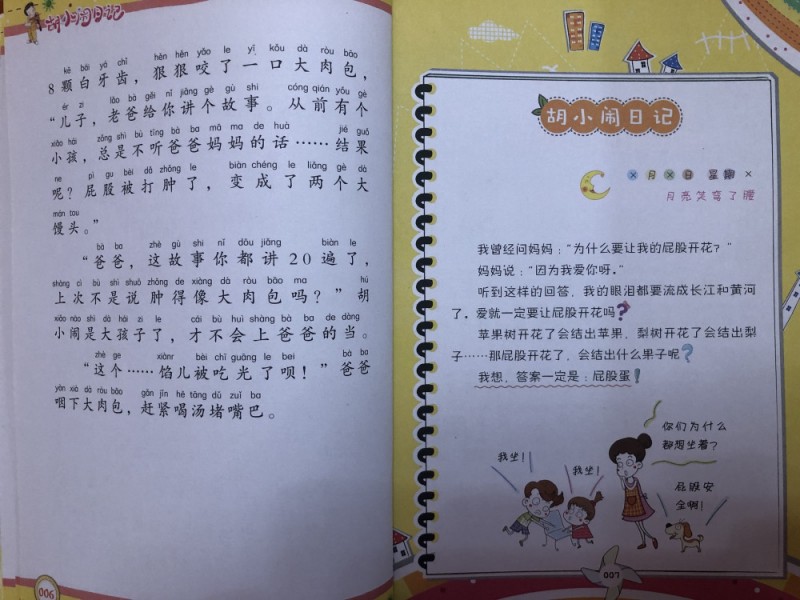 胡小闹日记
kē bái yá chǐ hěn hěn yǎo le yì kǒu dà ròu bāo
8颗白牙齿，狠狠咬了一口大肉包，
ér zi lǎo bà gěi nǐ jiǎng gè gù shi cóng qián yǒu gè
“儿子，老爸给你讲个故事。从前有个
xiǎo hái zǒng shì bù tīng bà ba mā ma de huà jié guǒ
小孩，总是不听爸爸妈妈的话……结果
ne pì gu bèi dǎ zhǒng le biàn chéng le liǎng gè dà
呢？屁股被打肿了，变成了两个大
mán tou
馒头。”
bà ba zhè gù shi nǐ dōu jiǎng biàn le
“爸爸，这故事你都讲20遍了，
shàng cì bú shì shuō zhǒng de xiàng dà ròu bāo ma hú
上次不是说肿得像大肉包吗？”胡
xiǎo nào shì dà hái zi le cái bú huì shàng bà ba de dàng
小闹是大孩子了，才不会上爸爸的当。
zhè ge xiànr bèi chī guāng le bei bà ba
“这个……馅儿被吃光了呗！”爸爸
yàn xià dà ròu bāo gǎn jǐn hē tāng dǔ zuǐ ba
咽下大肉包，赶紧喝汤堵嘴巴。
006
胡小闹日记
×月×日 星期×
月亮笑弯了腰
我曾经问妈妈：“为什么要让我的屁股开花？”
妈妈说：“因为我爱你呀。”
听到这样的回答，我的眼泪都要流成长江和黄河
了。爱就一定要让屁股开花吗？
苹果树开花了会结出苹果，梨树开花了会结出梨
子……那屁股开花了，会结出什么果子呢？
我想，答案一定是：屁股蛋！
你们为什么
都想坐着？
我坐！
我坐！
屁股安
全啊！
007